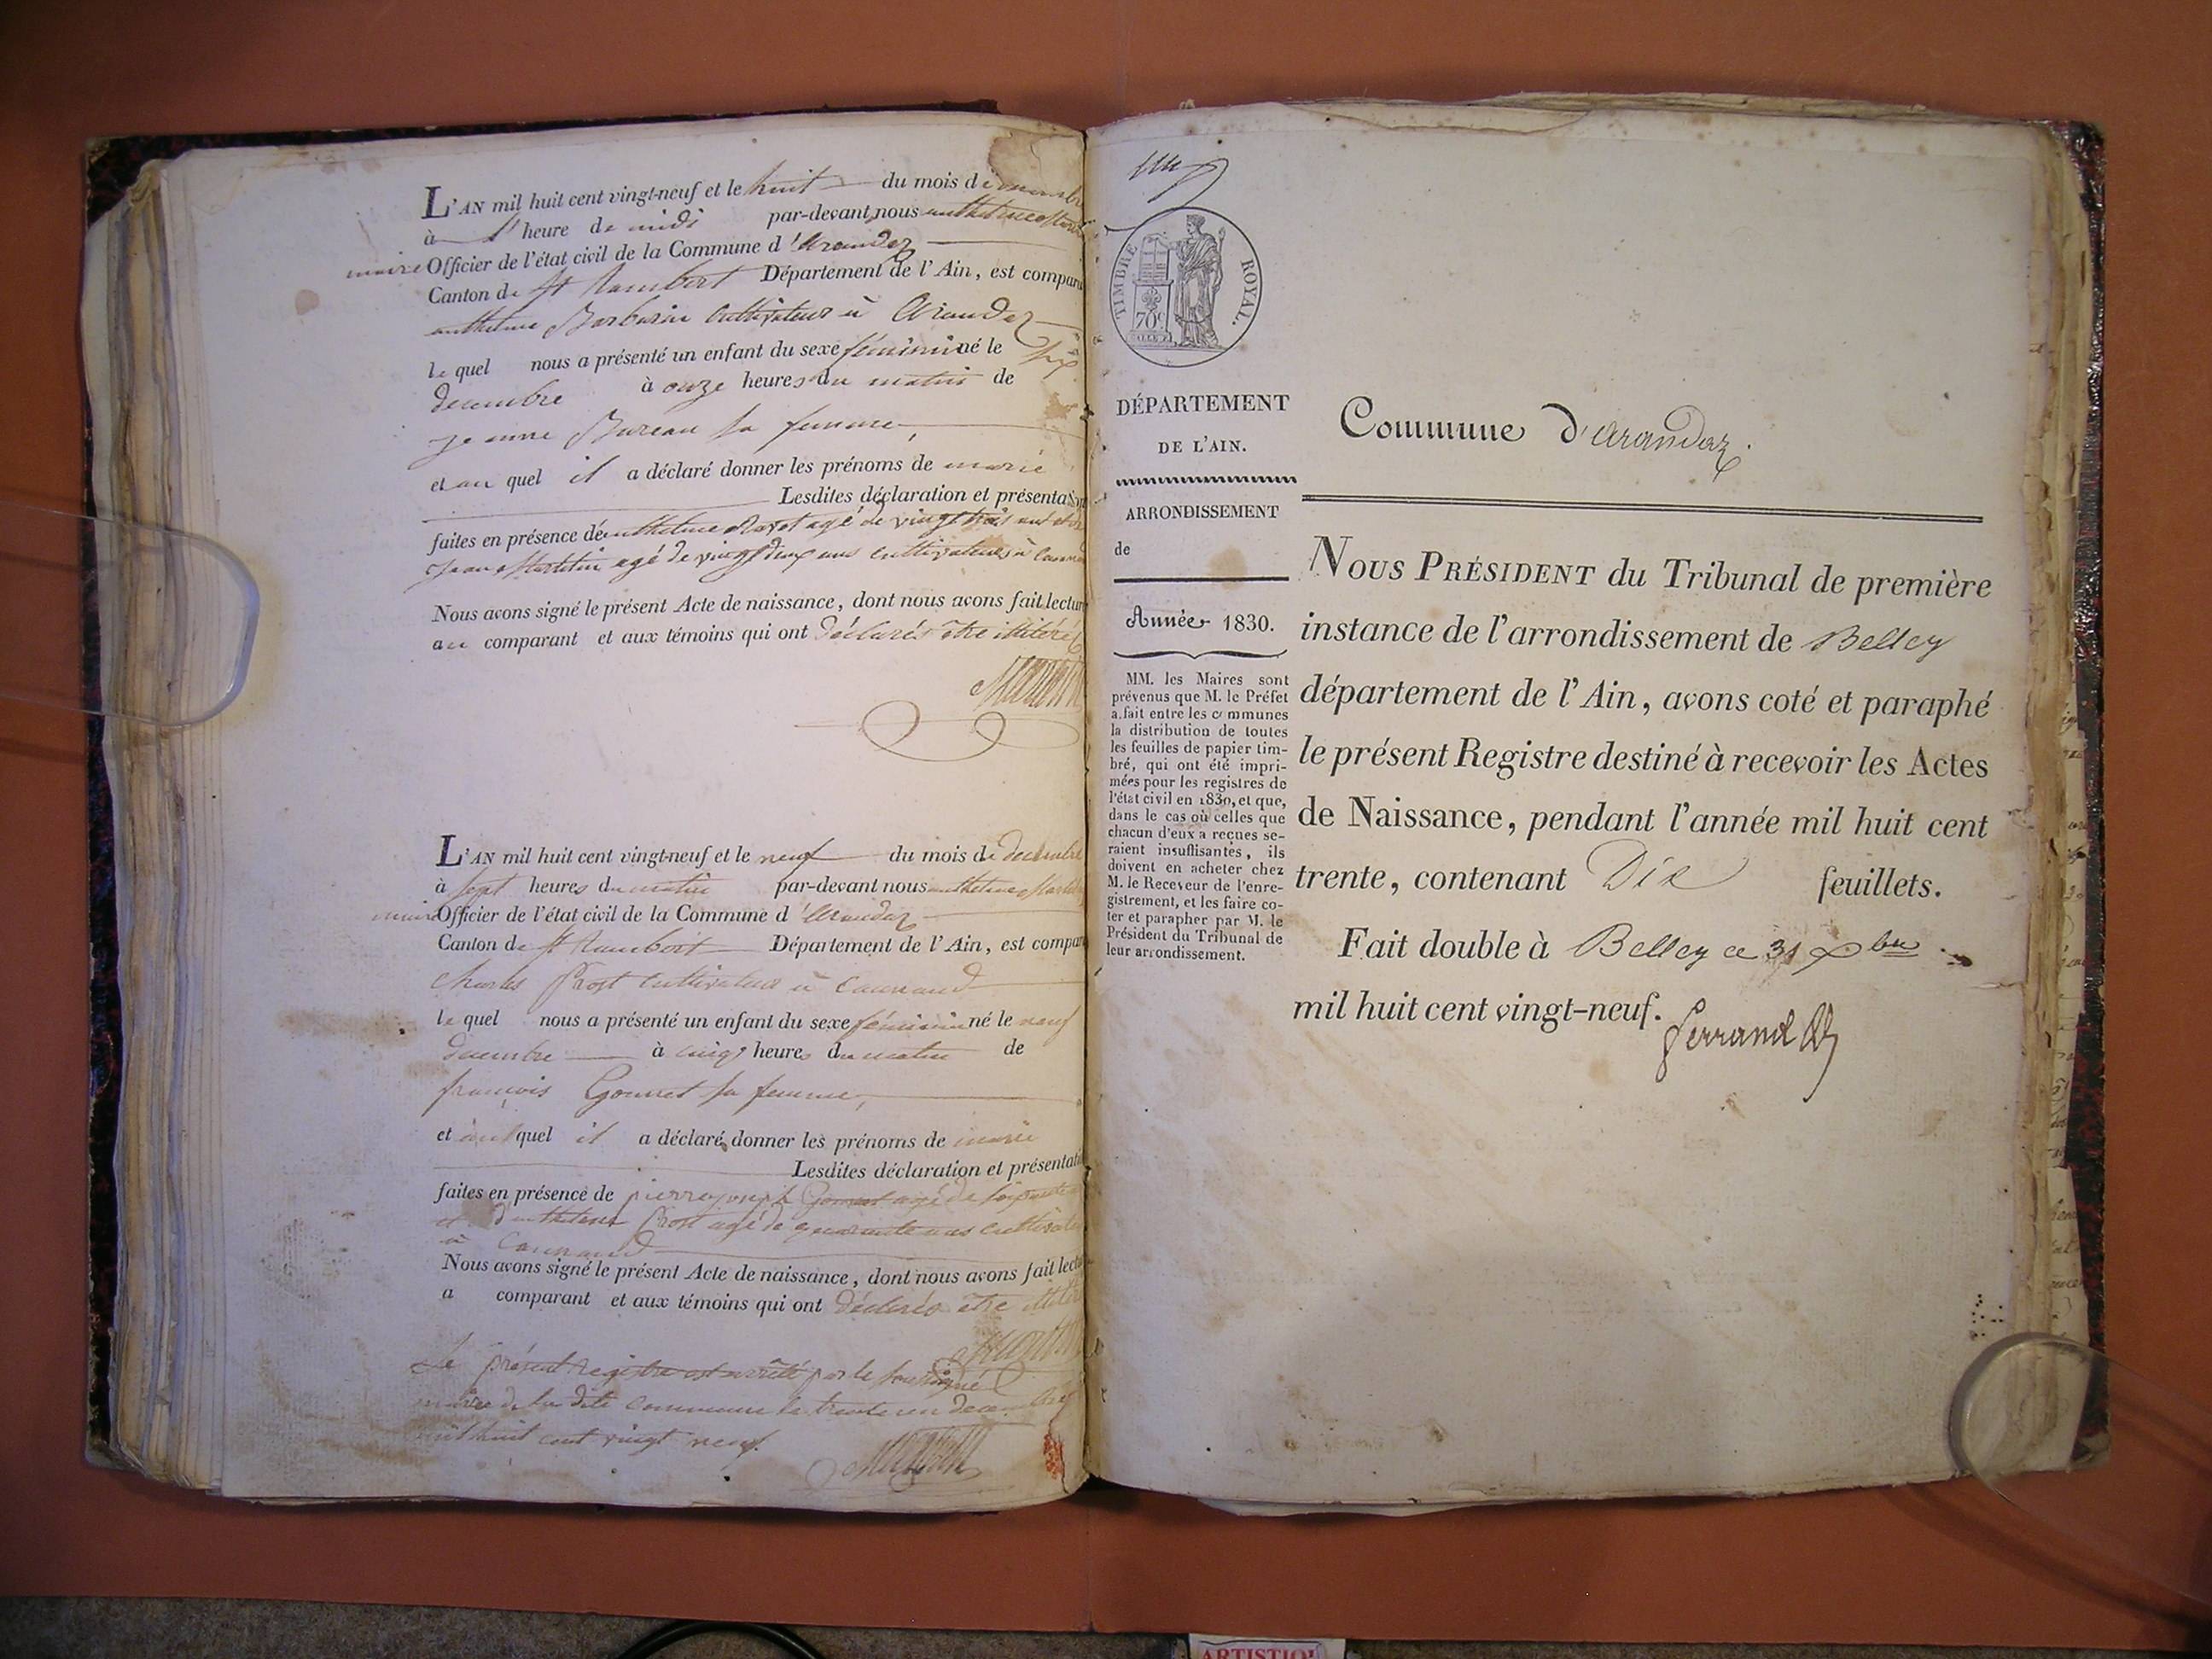 L'AN mil huit cent vingt-neuf et le huit du mois de
à l' heure de midi par-devant nous anthelme
maire Officier de l'état civil de la Commune d'Arandaz
Canton de St Rambert Département de l'Ain, est compar
anthelme Barbarin Cultivateur à Arandaz
le quel nous a présenté un enfant du sexe féminin né le
decembre à onze heures du matin de
jeanne Bureau sa femme,
et au quel il a déclaré donner les prénoms de marie
Lesdites déclaration et présentation
faites en présence de anthelme agé de vingt trois ans et de
jean Martin agé de vingt deux ans cultivateurs à
Nous avons signé le présent Acte de naissance, dont nous avons fait lectur
au comparant et aux témoins qui ont déclarés être
Martin
L'AN mil huit cent vingt-neuf et le neuf du mois de decembre
à sept heures du matin par-devant nous anthelme Martin
maire Officier de l'état civil de la Commune d'Arandaz
Canton de St Rambert Département de l'Ain, est compar
Charles Prost cultivateur à
le quel nous a présenté un enfant du sexe féminin né le neuf
decembre à cinq heures du matin de
françois Gonnet sa femme,
et quel il a déclaré donner les prénoms de marie
Lesdites déclaration et présentati
faites en présence de pierre joseph agé de
et d'anthelme Prost agé de quarante ans cultivate
à
Nous avons signé le présent Acte de naissance, dont nous avons fait lectu
a comparant et aux témoins qui ont déclarés être
Martin
Le présent registre est arrêté par le soussigné
maire de la dite commune le trente un decembre
mil huit cent vingt neuf.
Martin
TIMBRE ROYAL.
70c
DÉPARTEMENT
DE L'AIN.
ARRONDISSEMENT
de
Année 1830.
MM. les Maires sont
prévenus que M. le Préfet
a fait entre les communes
la distribution de toutes
les feuilles de papier tim-
bré, qui ont été impri-
mées pour les registres de
l'état civil en 1830, et que,
dans le cas où celles que
chacun d'eux a reçues se-
raient insuffisantes, ils
doivent en acheter chez
M. le Receveur de l'enre-
gistrement, et les faire co-
ter et parapher par M. le
Président du Tribunal de
leur arrondissement.
Commune d'arandaz.
NOUS PRÉSIDENT du Tribunal de première
instance de l'arrondissement de Belley
département de l'Ain, avons coté et paraphé
le présent Registre destiné à recevoir les Actes
de Naissance, pendant l'année mil huit cent
trente, contenant Dix feuillets.
Fait double à Belley ce 31 Xbre
mil huit cent vingt-neuf.
Ferrand
ARTISTIQU